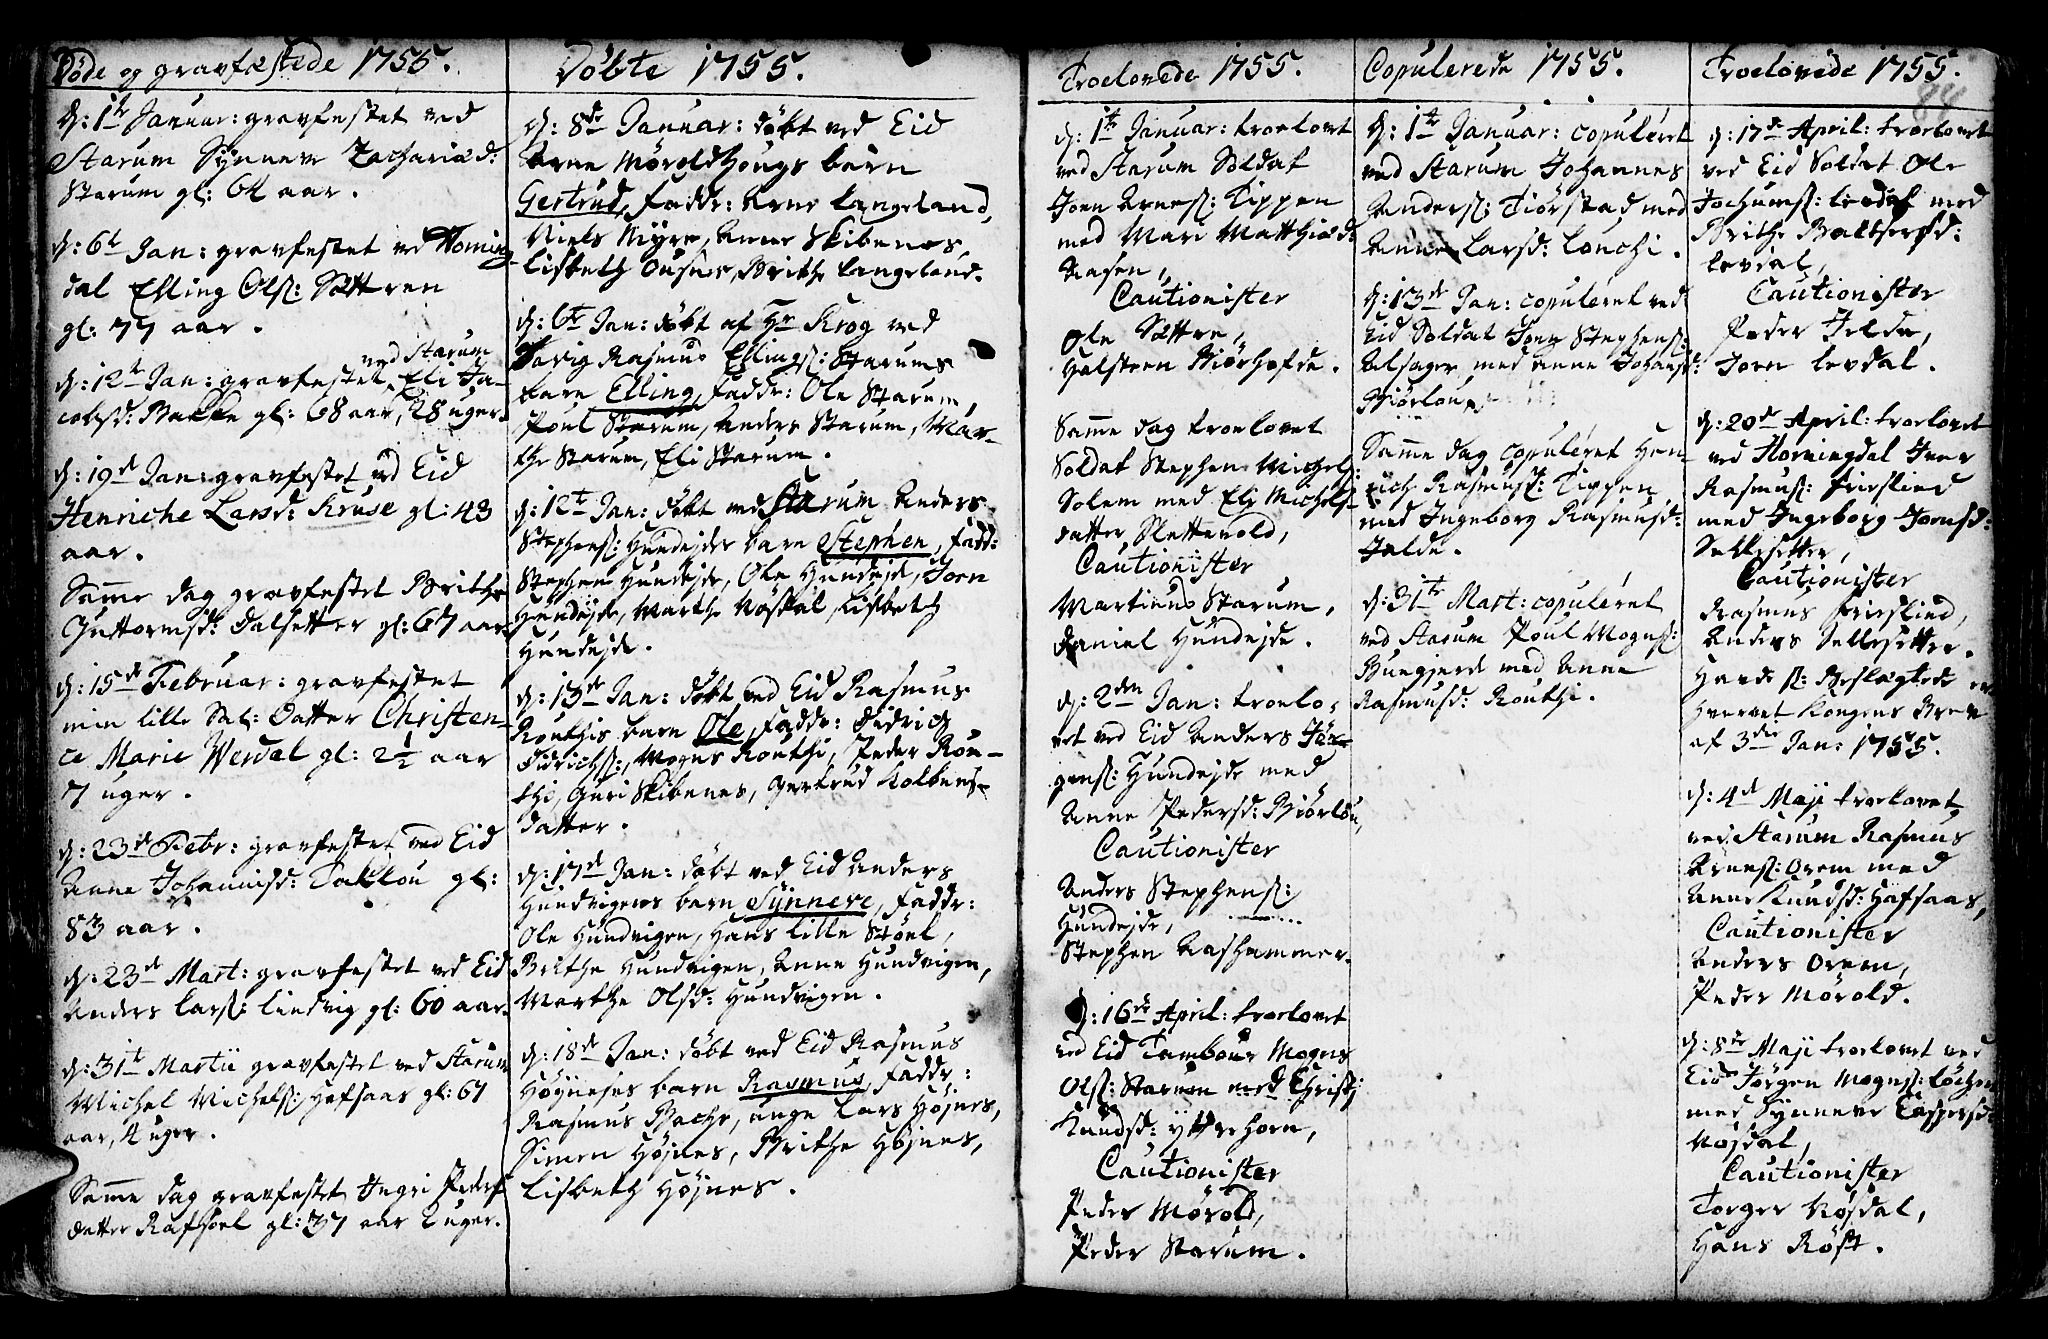 Døde og gravfæstede 1755.
d: 1te Januar: gravfestet ved
Starum Synneve Zachariæd:
Starum gl: 64 aar.
d: 6te Jan: gravfestet ved Horning-
dal Elling Olss: Sættren
gl: 77 aar.
ved Starum
d: 12te Jan: gravfestet Eli Ja-
cobsd: Bakke gl: 68 aar, 28 uger.
d: 19de Jan: gravfestet ved Eid
Henriche Larsd: Kruse gl: 43
aar.
Samme dag gravfestet Brithe
Guttormsd: Dalsetter gl: 67 aar.
d: 15de Februar: gravfestet
min lille Sal: Datter Christen-
ce Marie Werdal gl: 2½ aar
7 uger.
d: 23de Febr: gravfestet ved Eid
Anne Johannisd: Taklou gl:
83 aar.
d: 23de Mart: gravfestet ved Eid
Anders Larss: Lindvig gl: 60 aar.
d: 31te Martii gravfestet ved Starum
Michel Michelss: Hafsaas gl: 67
aar, 4 uger.
Samme dag gravfestet Ingri Peders
datter Rafstoel gl: 37 aar 2 uger.
Døbte 1755.
d: 8de Januar: døbt ved Eid
Arne Møroldhougs barn
Gertrud, Faddr: Arne Langeland,
Niels Myre, Anne Skibenes,
Lisbeth Ousnes, Brithe Langeland.
d: 6te Jan: døbt af Hr Krog ved
Davig Rasmus Ellingss: Starums
barn Elling, Faddr: Ole Starum,
Poul Starum, Anders Starum, Mar-
the Starum, Eli Starum.
d: 12te Jan: døbt ved Starum Anders
Stephenss: Hundejdes barn Stephen, Fadd:
Stephen Hundejde, Ole Hundejde, Joen
Hundejde, Marthe Nøsdal, Lisbeth
Hundejde.
d: 13de Jan: døbt ved Eid Rasmus
Routhis barn Ole, Faddr: Didrich
Didrichss:, Mogns Routhi, Peder Rou-
thi, Guri Skibenes, Gertrud Kolbens-
datter.
d: 17de Jan: døbt ved Eid Anders
Hundvigens barn Synneve, Faddr:
Ole Hundvigen, Hans lille Støel,
Brithe Hundvigen, Anne Hundvigen,
Marthe Olsd: Hundvigen.
d: 18de Jan: døbt ved Eid Rasmus
Høyneses barn Rasmus, Faddr:
Rasmus Bache, unge Lars Højnes,
Simen Højnes, Brithe Højnes,
Lisbeth Højnes.
Troelovede 1755.
d: 1te Januar: troelovet
ved Starum Soldat
Joen Arness: Tippen
med Mari Matthiæd:
Aasen,
Cautionister
Ole Sættre,
Halsteen Biørhofde.
Samme dag troelovet
Soldat Stephen Michels:
Solem med Eli Michels-
datter Slettevold,
Cautionister
Martinus Starum,
Daniel Hundejde.
d: 2den Jan: troelo-
vet ved Eid Anders Jør-
genss: Hundejde med
Anne Pedersd: Biørlou,
Cautionister
Anders Stephenss:
Hundejde,
Stephen Aashammer.
d: 16de April: troelovet
ved Eid Tambour Mogns
Olss: Starum med Christj
Knudsd: ytterhorn,
Cautionister
Peder Mørold,
Peder Starum.
Copulerede 1755.
d: 1te Januar: copuleret
ved Starum Johannes
Anderss: Tiørstad med
Anne Larsd: Louchi.
d: 13de Jan: copuleret ved
Eid Soldat Joen Stephenss:
Alsager med Anne Johansd:
Biørlou.
Samme dag copuleret Hen-
rich Rasmuss: Tippen
med Ingeborg Rasmusd:
Jelde.
d: 31te Mart: copuleret
ved Starum Poul Mognss:
Hungjerd med Anne
Rasmusd: Routhi.
Troelovede 1755.
d: 17de April: troelovet
ved Eid Soldat Ole
Jochumss: Levdal med
Brithe Baltsersd:
Levdal,
Cautionister
Peder Jelde,
Joen Levdal.
d: 20de April: troelovet
ved Horningdal Iver
Rasmuss: Frislied
med Ingeborg Joensd:
Sellesetter,
Cautionister
Rasmus Frislied,
Anders Sellesetter.
Hende ss: Beslægtede er
hvervet Kongens Brev
af 3die Jan: 1755.
d: 4de Maji troelovet
ved Starum Rasmus
Arness: Orem med
Anne Knudsd: Hafsaas,
Cautionister
Anders Orem,
Peder Mørold.
d: 8de Maji troelovet ved
Eid Jørgen Mognss: Løchen
med Synneve Caspersd:
Nøsdal,
Cautionister
Torger Nøsdal,
Hans Røft.